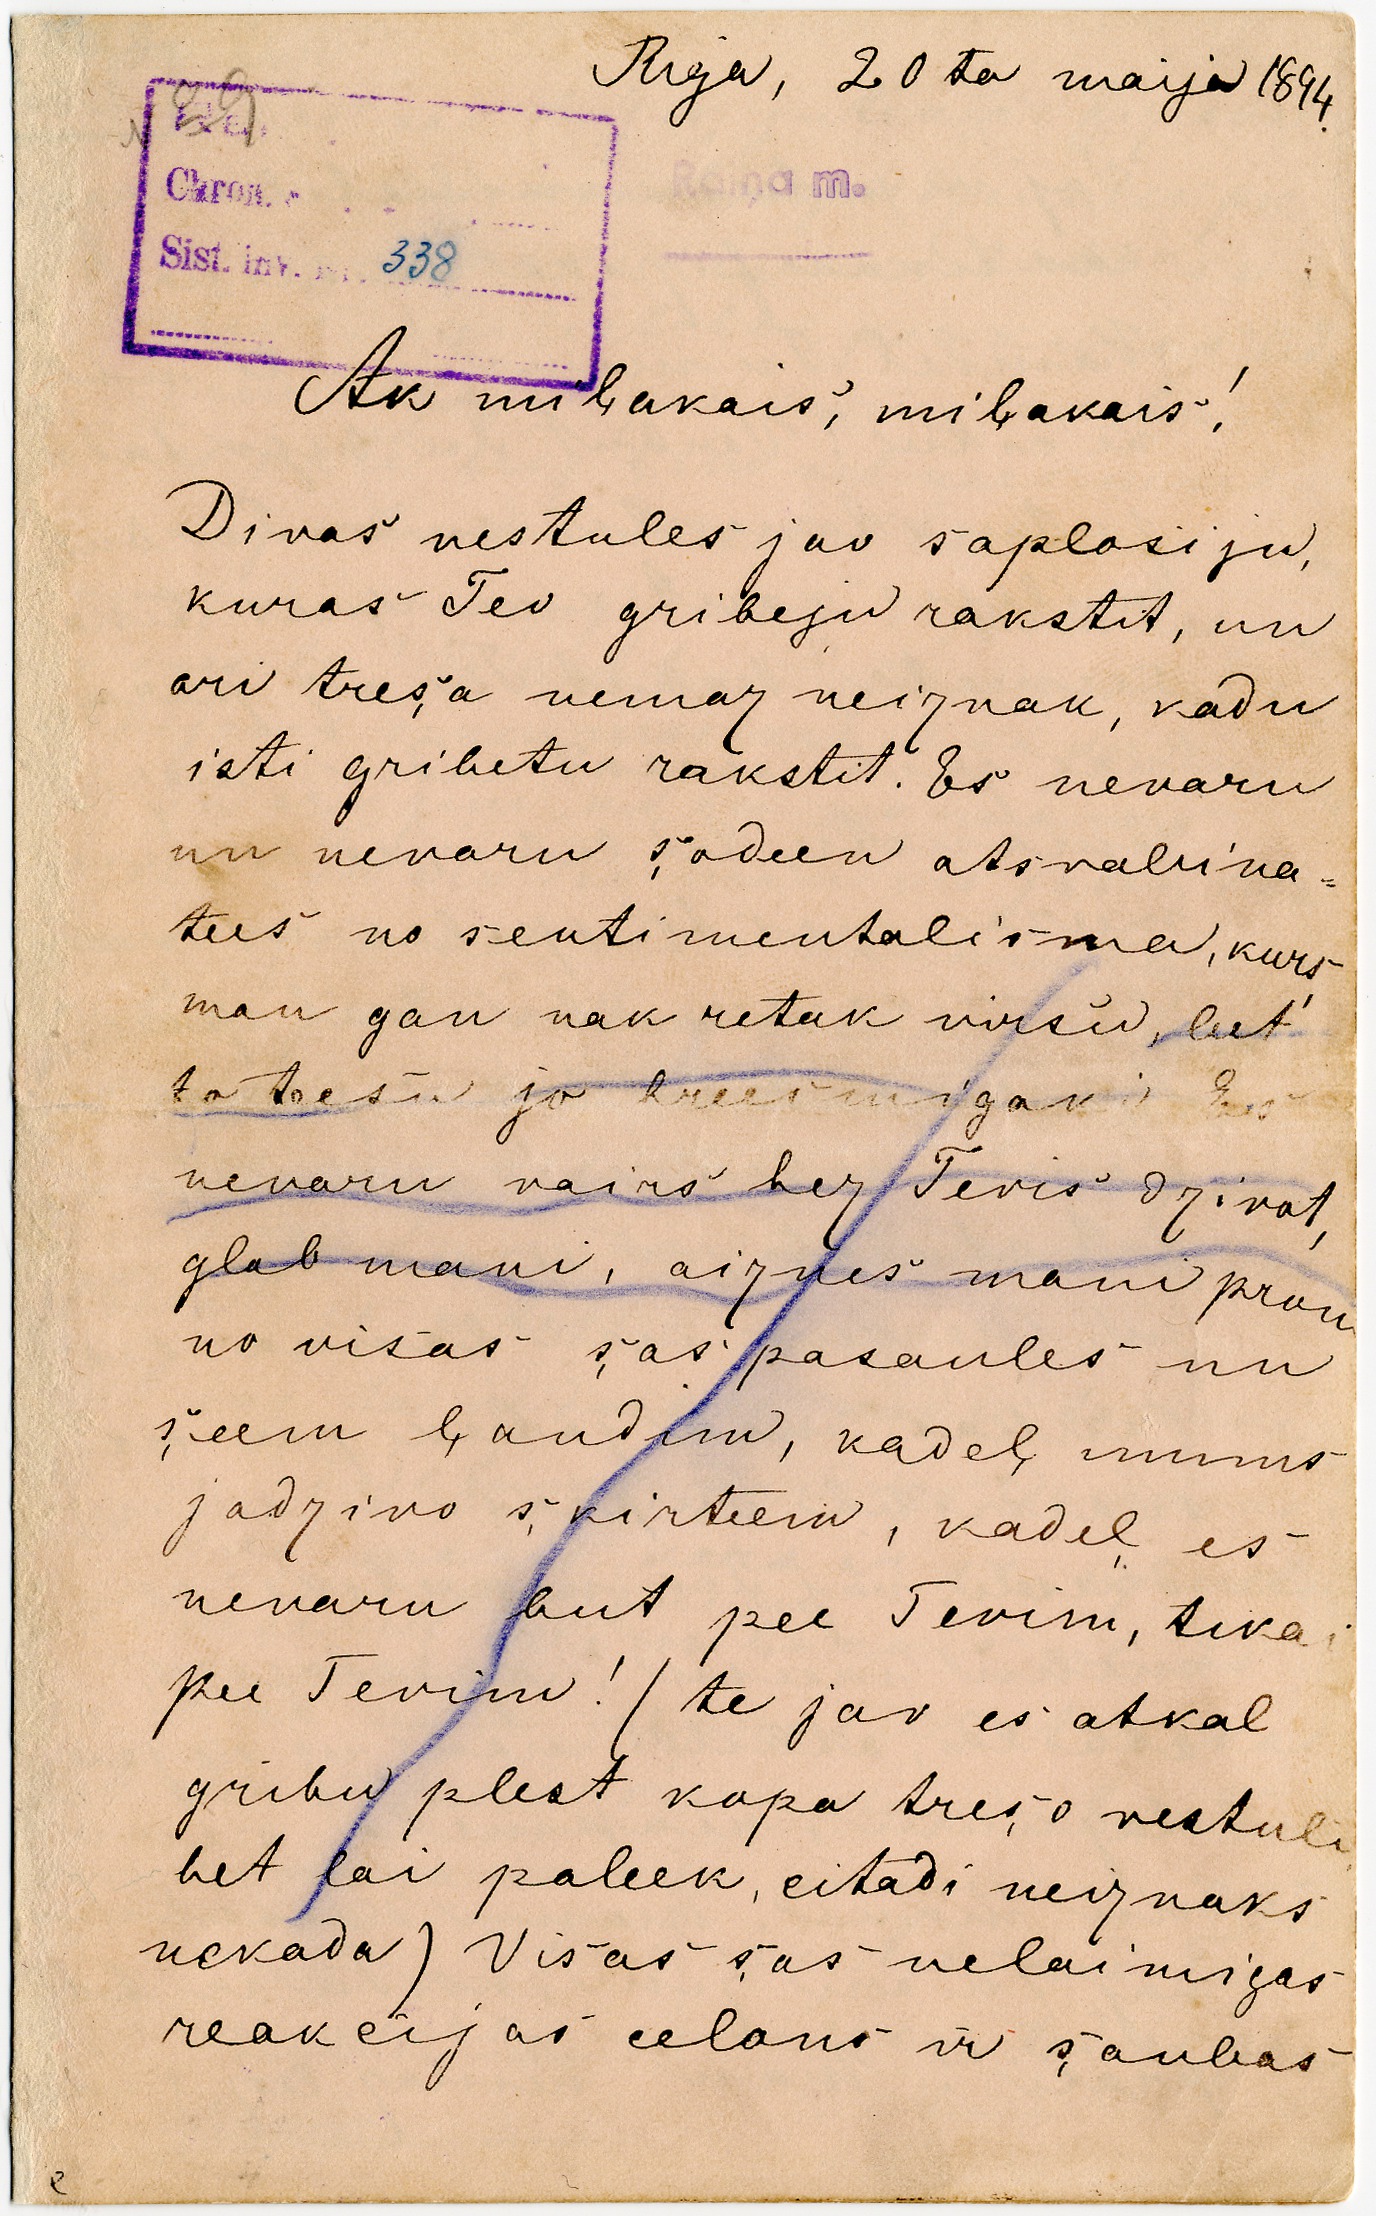 Riga, 20ta maija 1894.
N 39
Chron.
Sist. inv. 338
Raiņa m.
Ak miļakais, miļakais!
Divas vestules jav saplosiju,
kuras Tev gribeju rakstit, un
ari treşa nemaz neiznak, kadu
isti gribetu rakstit. Es nevaru
un nevaru şodeen atsvabina=
tees no sentimentalisma, kurs
man gan nak retak virsu, bet
to teesu jo breesmigaki Es
nevaru vairs bez Tevis dzivot,
glab mani, aiznes mani prom
no visas şas pasaules un
şeem ļaudim, kadeļ mums
jadzivo şkirteem, kadeļ es
nevaru but pee Tevim, tikai
pee Tevim! (te jav es atkal
gribu plest kopa treşo vestuli
bet lai paleek, citadi neiznaks
nekada) Visas şas nelaimigas
reakcijas celons ir şaubas